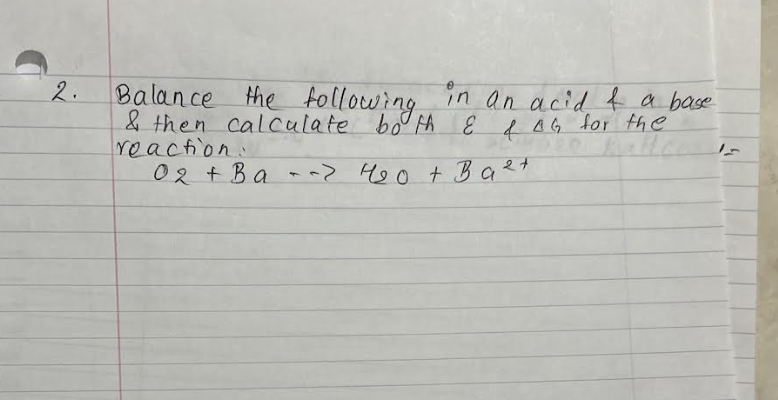 2. Balance the following in an acid & a base
& then calculate both ε & ΔG for the
reaction:
O2 + Ba --> H2O + Ba²⁺